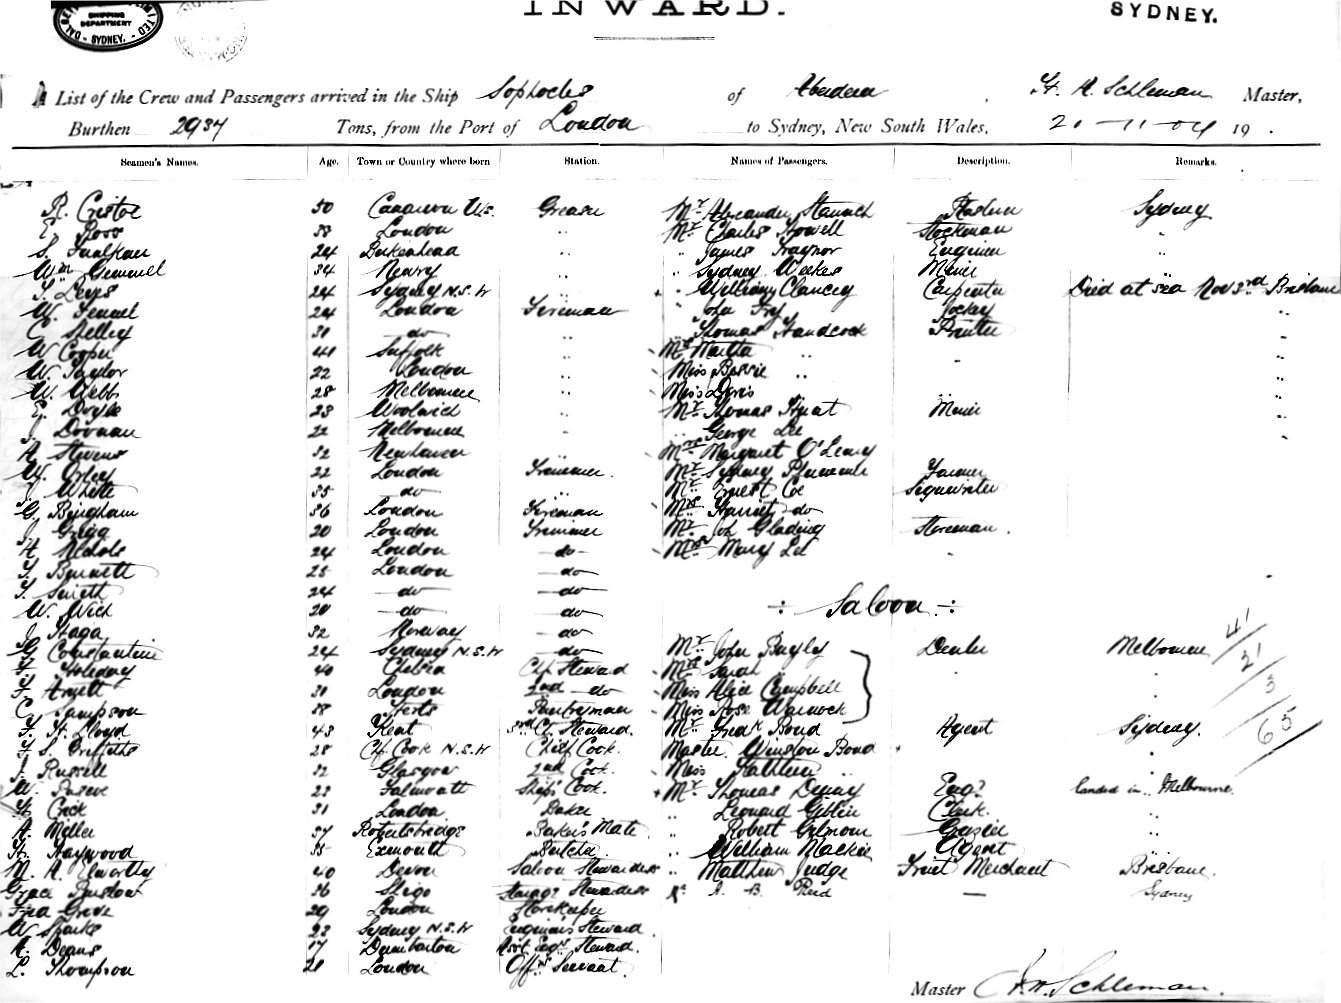 INWARD.
SYDNEY.
SHIPPING DEPARTMENT
SYDNEY.
List of the Crew and Passengers arrived in the Ship Sophocles of Aberdeen, Master,
Burthen 2937 Tons, from the Port of London to Sydney, New South Wales, 21-11-04 19 .
Seamen's Names. Age. Town or Country where born Station. Names of Passengers. Description. Remarks.
R. 50 Greaser Mr Alexander Sydney
E. Ross 33 London " Mr Charles Howell Stockman "
S. Faulkner 24 Birkenhead " " James Traynor Engineer
Wm Gemmel 34 Newry " " Sydney Weekes Miner
T. Leys 24 Sydney N.S.W " " William Clancey Carpenter Died at sea Nov 3rd Brisbane
W. 24 London Fireman " John Fry Jockey "
C. Skelley 31 do " " Thomas Handcock Printer "
W Cooper 41 Suffolk " Mrs Martha " "
W. Taylor 22 London " Miss Bessie " "
W. Webb 28 Melbourne " Miss Doris "
E. Doyle 23 Woolwich " Mr Thomas Miner "
J. Doonan 22 Melbourne " " George Lee "
A. Stevens 32 Newhaven Mrs Margaret O'Leary
W. Orley 22 London Trimmer. Mr Sydney Farmer
J. White 35 do " Mr Ernest Coe Signwriter
G. Bingham 36 London Fireman Mrs Harriet do
J. Grigg 20 London Trimmer Mr Jn Glading Storeman.
H. Nichols 24 London do Mrs Mary Lee "
Bennett 25 London do
T. Smith 24 do do
W. Wich 20 do do ÷ Saloon ÷
J. Haga 32 Norway do
G. Constantine 24 Sydney N.S.W do Mr John Bayly Dealer Melbourne 41
Holiday 40 Chelsea Chf Steward Mrs Sarah " " 21
Arnett 31 London 2nd do Miss Alice Campbell " 3
C. Sampson 38 Herts Pantryman Miss Rose Warnock " 65
H. Lloyd 43 Kent 3rd Cl. Steward. Mr Frank Bond Agent Sydney.
S. Griffiths 28 C/o Cook N.S.W Chief Cook. Master Winston Bond "
J. Russell 32 Glasgow 2nd Cook. Miss Kathleen " "
W. Pascoe 23 Falmouth Ship's Cook. Mr Thomas Engr landed in Melbourne.
Cock 31 London Baker " Leonard Giblin Clerk. "
A. Miller 37 Robertsbridge Baker's Mate. " Robert Gilmour Grazier "
Haywood 35 Exmouth Butcher " William Mackie Agent "
M. A. Elworthy 40 Devon Saloon Stewardess " Matthew Judge Fruit Merchant Brisbane.
Grace 36 Sligo Steerge Stewardess A. B. Reid — Sydney
Fred Grose 29 London Storekeeper
W Sparks 23 Sydney N.S.W Engineer's Steward.
A. Deans 17 Dumbarton Asst Engrs Steward.
L. Thompson 21 London Offrs Servant.
Master